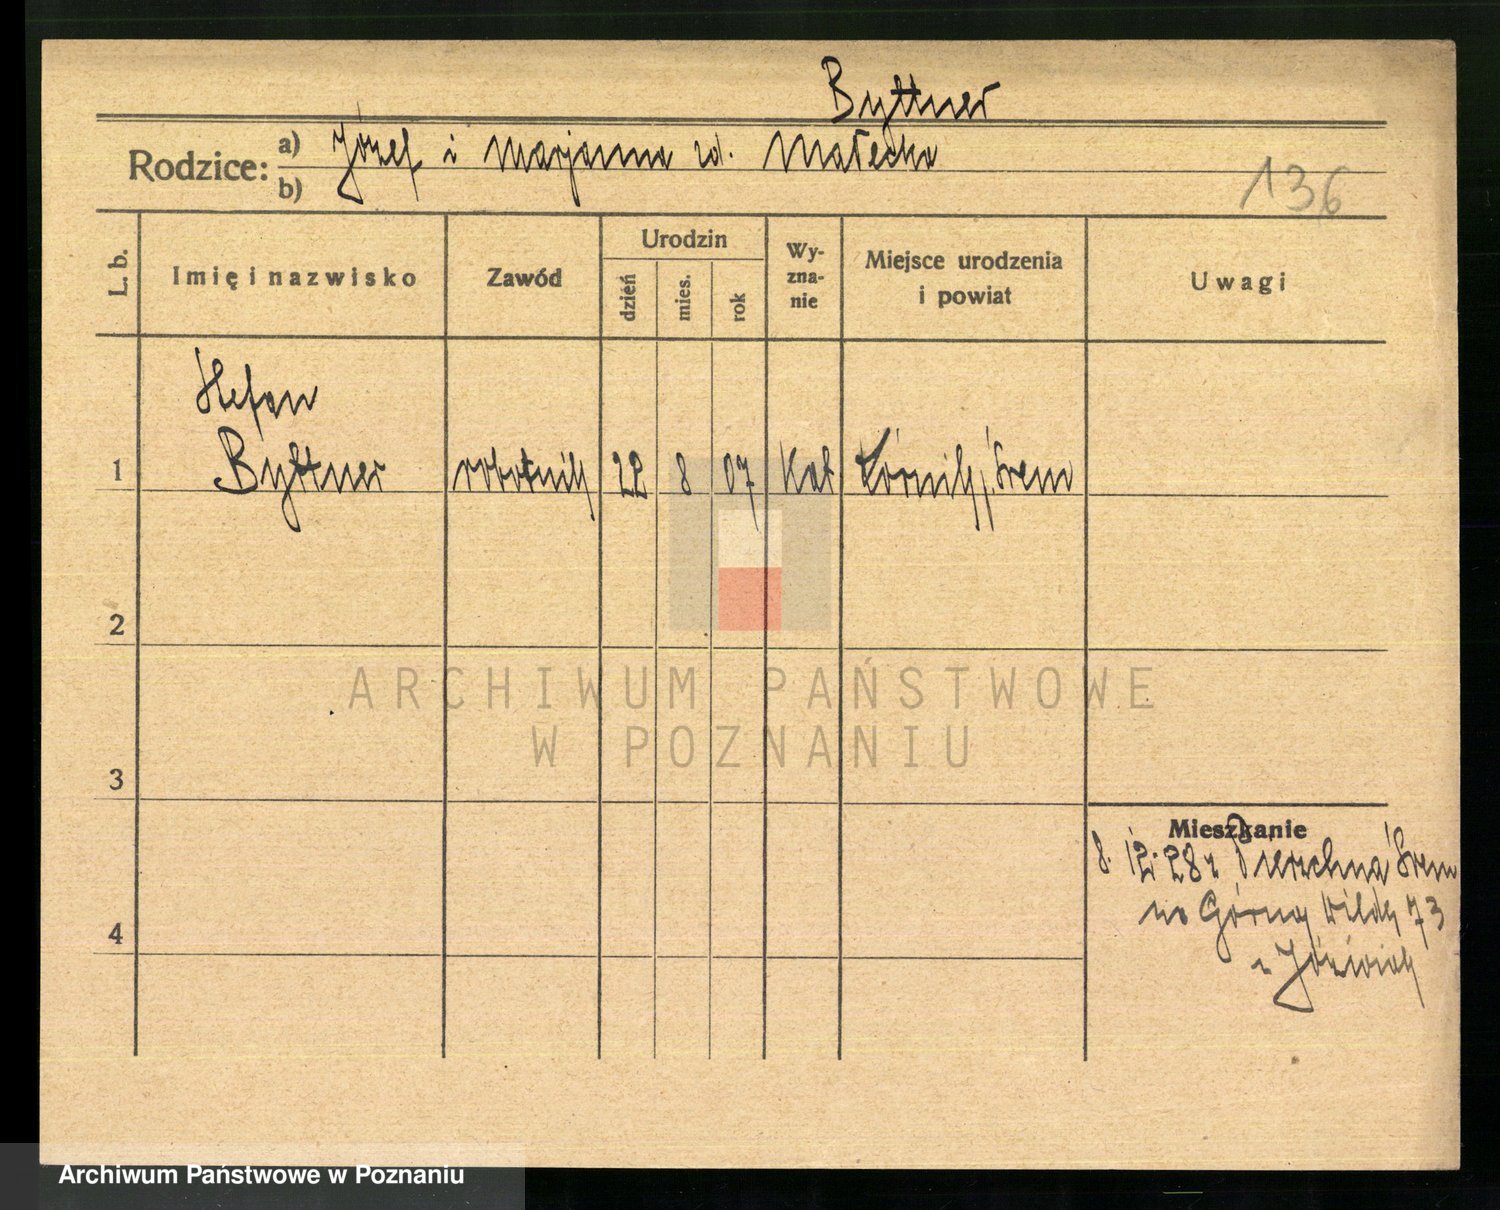 Byttner
Rodzice: a) Józef i Marjanna zd. Małecka
b)
136
L. b.
Imię i nazwisko
Zawód
Urodzin
dzień
mies.
rok
Wy-
zna-
nie
Miejsce urodzenia
i powiat
Uwagi
Stefan
1 Byttner robotnik 22 8 07 Kat Kórnik, Śrem
2
3
4
ARCHIWUM PAŃSTWOWE
W POZNANIU
Mieszkanie
8. 12. 28 z Pierzchna Śrem
na Górna Wilda 73
Archiwum Państwowe w Poznaniu